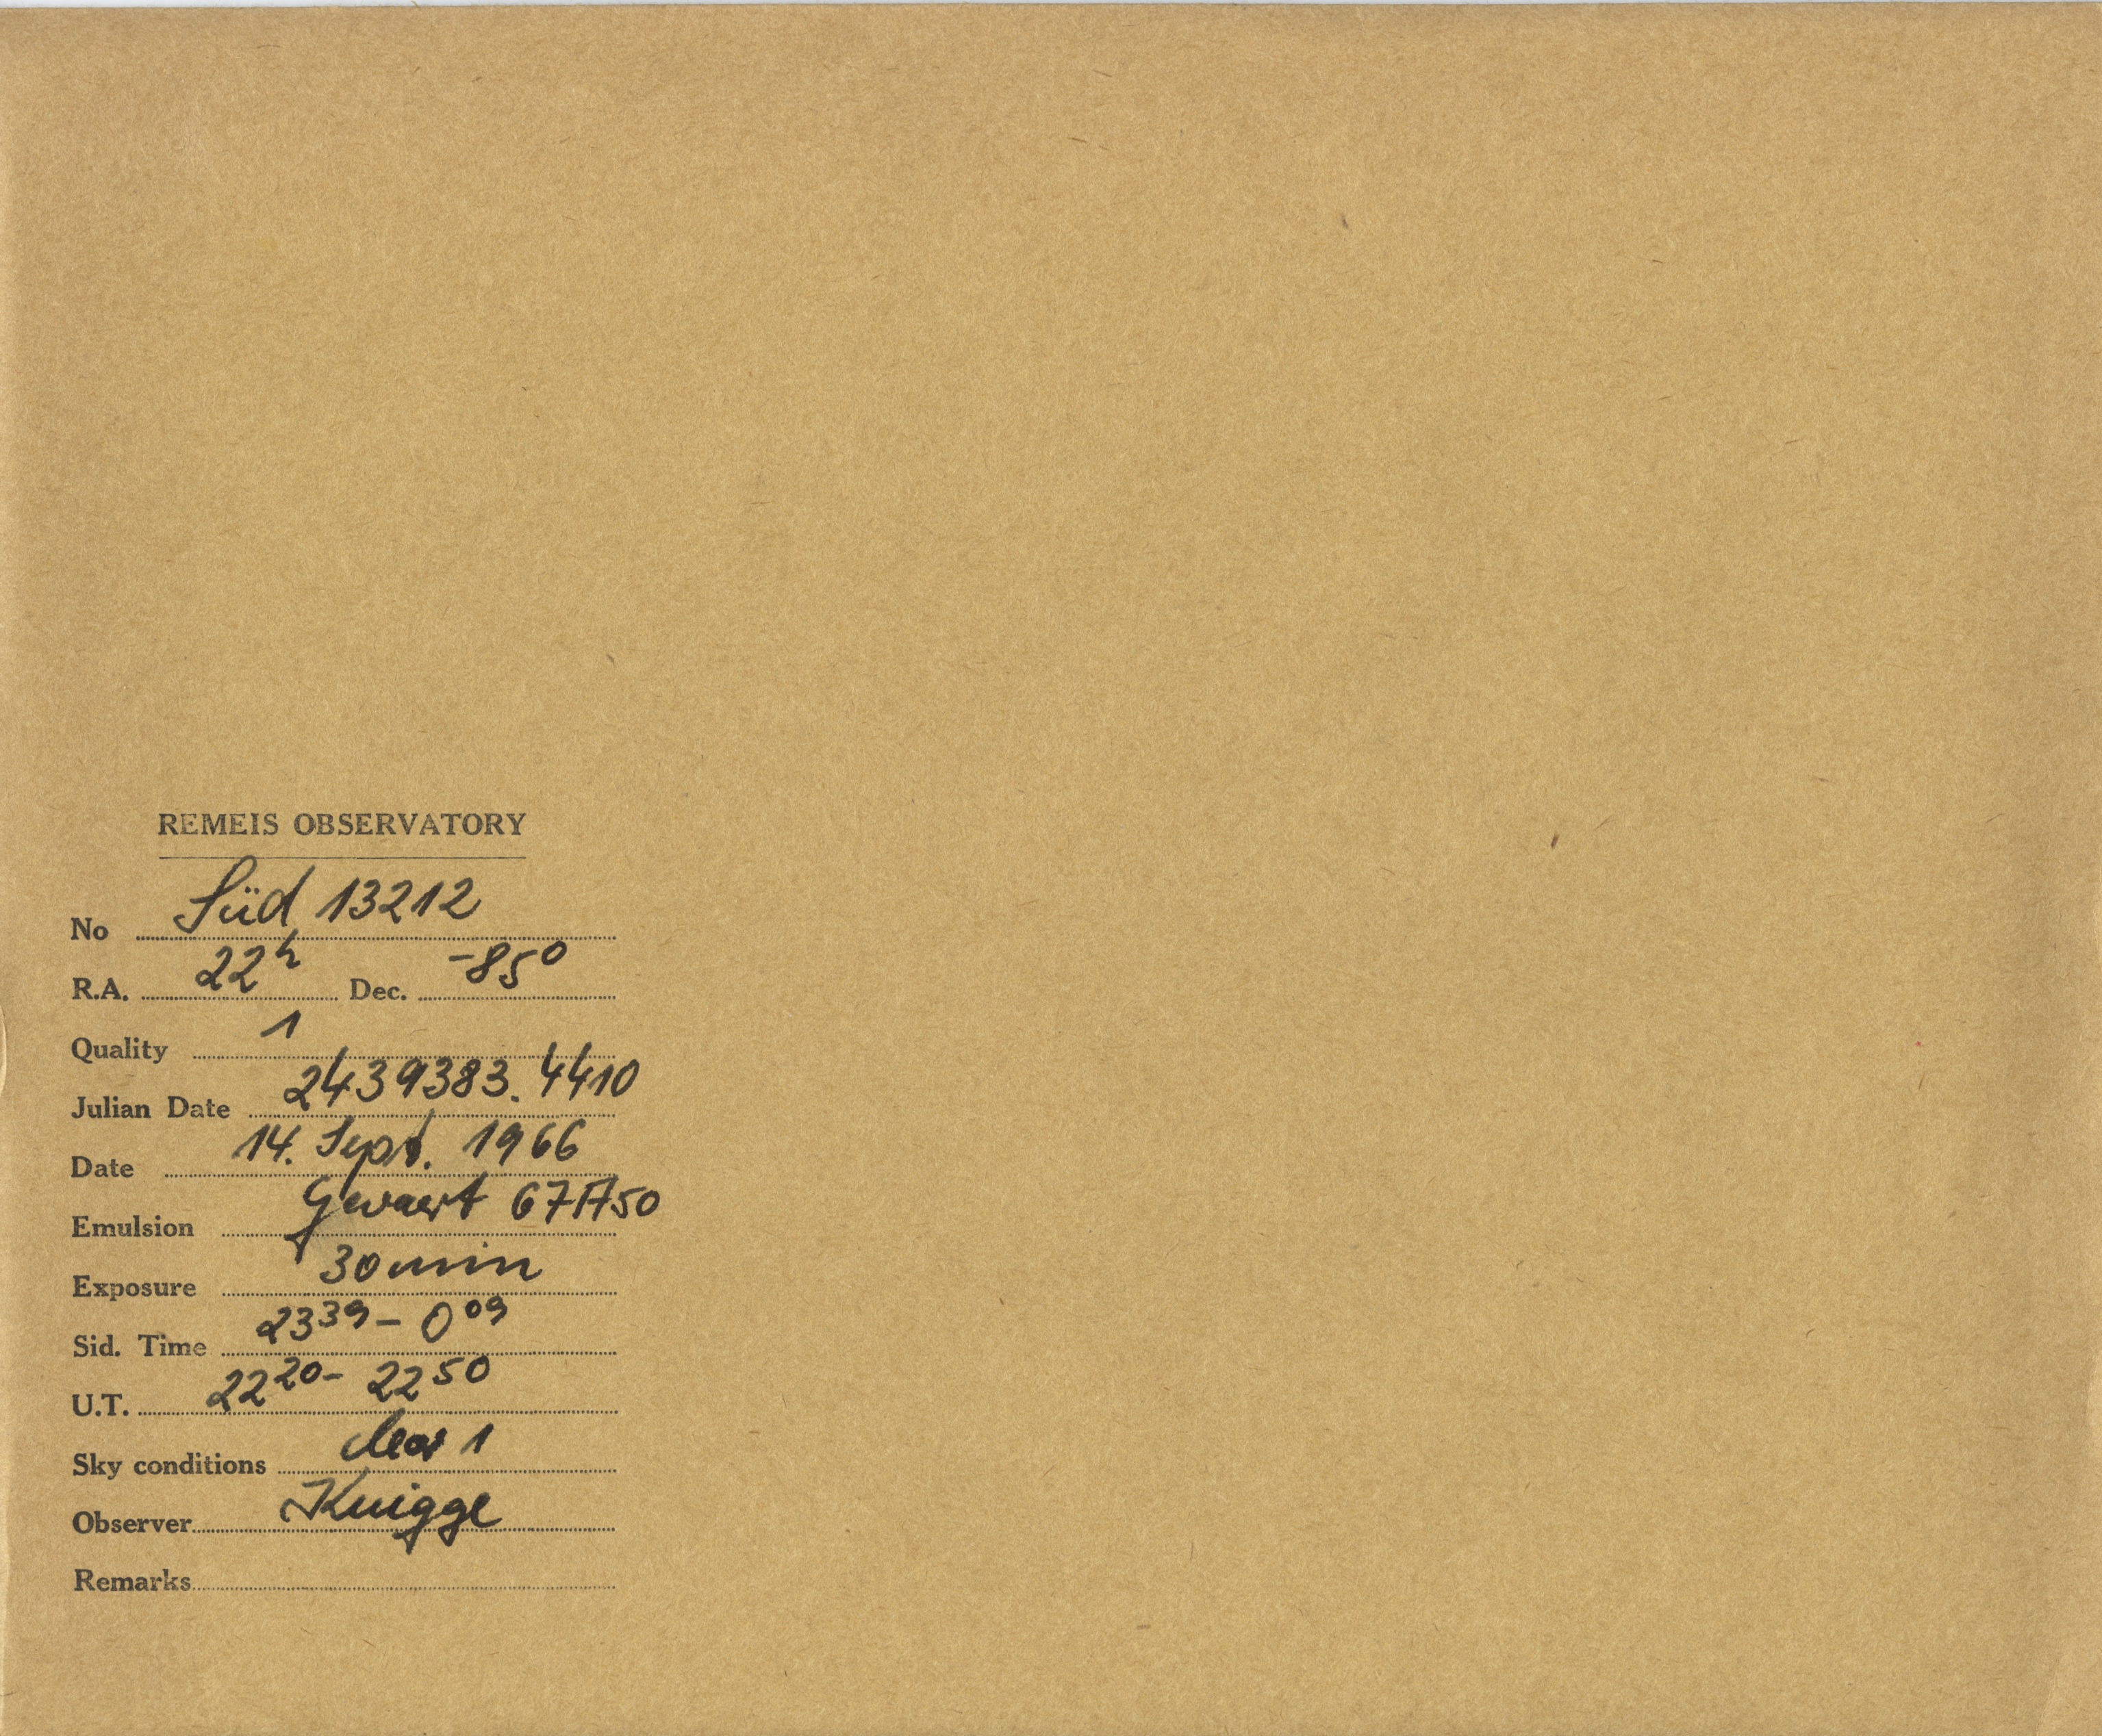 REMEIS OBSERVATORY
No Süd 13212
R.A. 22h Dec. -85°
Quality 1
Julian Date 2439383.4410
Date 14. Sept. 1966
Emulsion Gevaert 67A50
Exposure 30 min
Sid. Time 23 39 - 0 09
U.T. 22 20 - 22 50
Sky conditions clear 1
Observer Knigge
Remarks